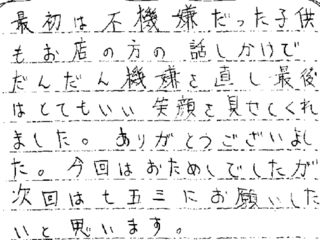 最初は不機嫌だった子供
もお店の方の話しかけで
だんだん機嫌を直し最後
はとてもいい笑顔を見せてくれ
ました。ありがとうございまし
た。今回はおためしでしたが
次回は七五三にお願いした
いと思います。